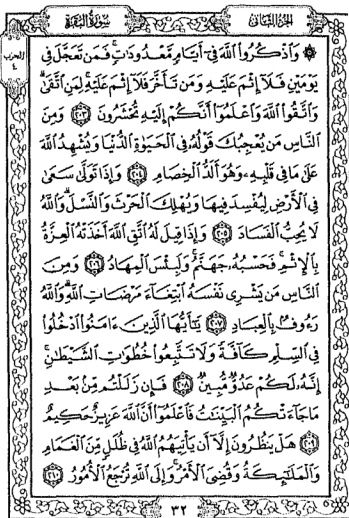 الجزء الثاني
سورة البقرة
الحزب ٤
۞ وَاذْكُرُوا اللَّهَ فِي أَيَّامٍ مَّعْدُودَاتٍ فَمَن تَعَجَّلَ فِي
يَوْمَيْنِ فَلَا إِثْمَ عَلَيْهِ وَمَن تَأَخَّرَ فَلَا إِثْمَ عَلَيْهِ لِمَنِ اتَّقَىٰ
وَاتَّقُوا اللَّهَ وَاعْلَمُوا أَنَّكُمْ إِلَيْهِ تُحْشَرُونَ ﴿٢٠٣﴾ وَمِنَ
النَّاسِ مَن يُعْجِبُكَ قَوْلُهُ فِي الْحَيَوٰةِ الدُّنْيَا وَيُشْهِدُ اللَّهَ
عَلَىٰ مَا فِي قَلْبِهِ وَهُوَ أَلَدُّ الْخِصَامِ ﴿٢٠٤﴾ وَإِذَا تَوَلَّىٰ سَعَىٰ
فِي الْأَرْضِ لِيُفْسِدَ فِيهَا وَيُهْلِكَ الْحَرْثَ وَالنَّسْلَ وَاللَّهُ
لَا يُحِبُّ الْفَسَادَ ﴿٢٠٥﴾ وَإِذَا قِيلَ لَهُ اتَّقِ اللَّهَ أَخَذَتْهُ الْعِزَّةُ
بِالْإِثْمِ فَحَسْبُهُ جَهَنَّمُ وَلَبِئْسَ الْمِهَادُ ﴿٢٠٦﴾ وَمِنَ
النَّاسِ مَن يَشْرِي نَفْسَهُ ابْتِغَاءَ مَرْضَاتِ اللَّهِ وَاللَّهُ
رَءُوفٌ بِالْعِبَادِ ﴿٢٠٧﴾ يَٰأَيُّهَا الَّذِينَ ءَامَنُوا ادْخُلُوا
فِي السِّلْمِ كَافَّةً وَلَا تَتَّبِعُوا خُطُوَٰتِ الشَّيْطَٰنِ
إِنَّهُ لَكُمْ عَدُوٌّ مُّبِينٌ ﴿٢٠٨﴾ فَإِن زَلَلْتُم مِّن بَعْدِ
مَا جَاءَتْكُمُ الْبَيِّنَٰتُ فَاعْلَمُوا أَنَّ اللَّهَ عَزِيزٌ حَكِيمٌ
﴿٢٠٩﴾ هَلْ يَنظُرُونَ إِلَّا أَن يَأْتِيَهُمُ اللَّهُ فِي ظُلَلٍ مِّنَ الْغَمَامِ
وَالْمَلَٰئِكَةُ وَقُضِيَ الْأَمْرُ وَإِلَى اللَّهِ تُرْجَعُ الْأُمُورُ ﴿٢١٠﴾
٣٢